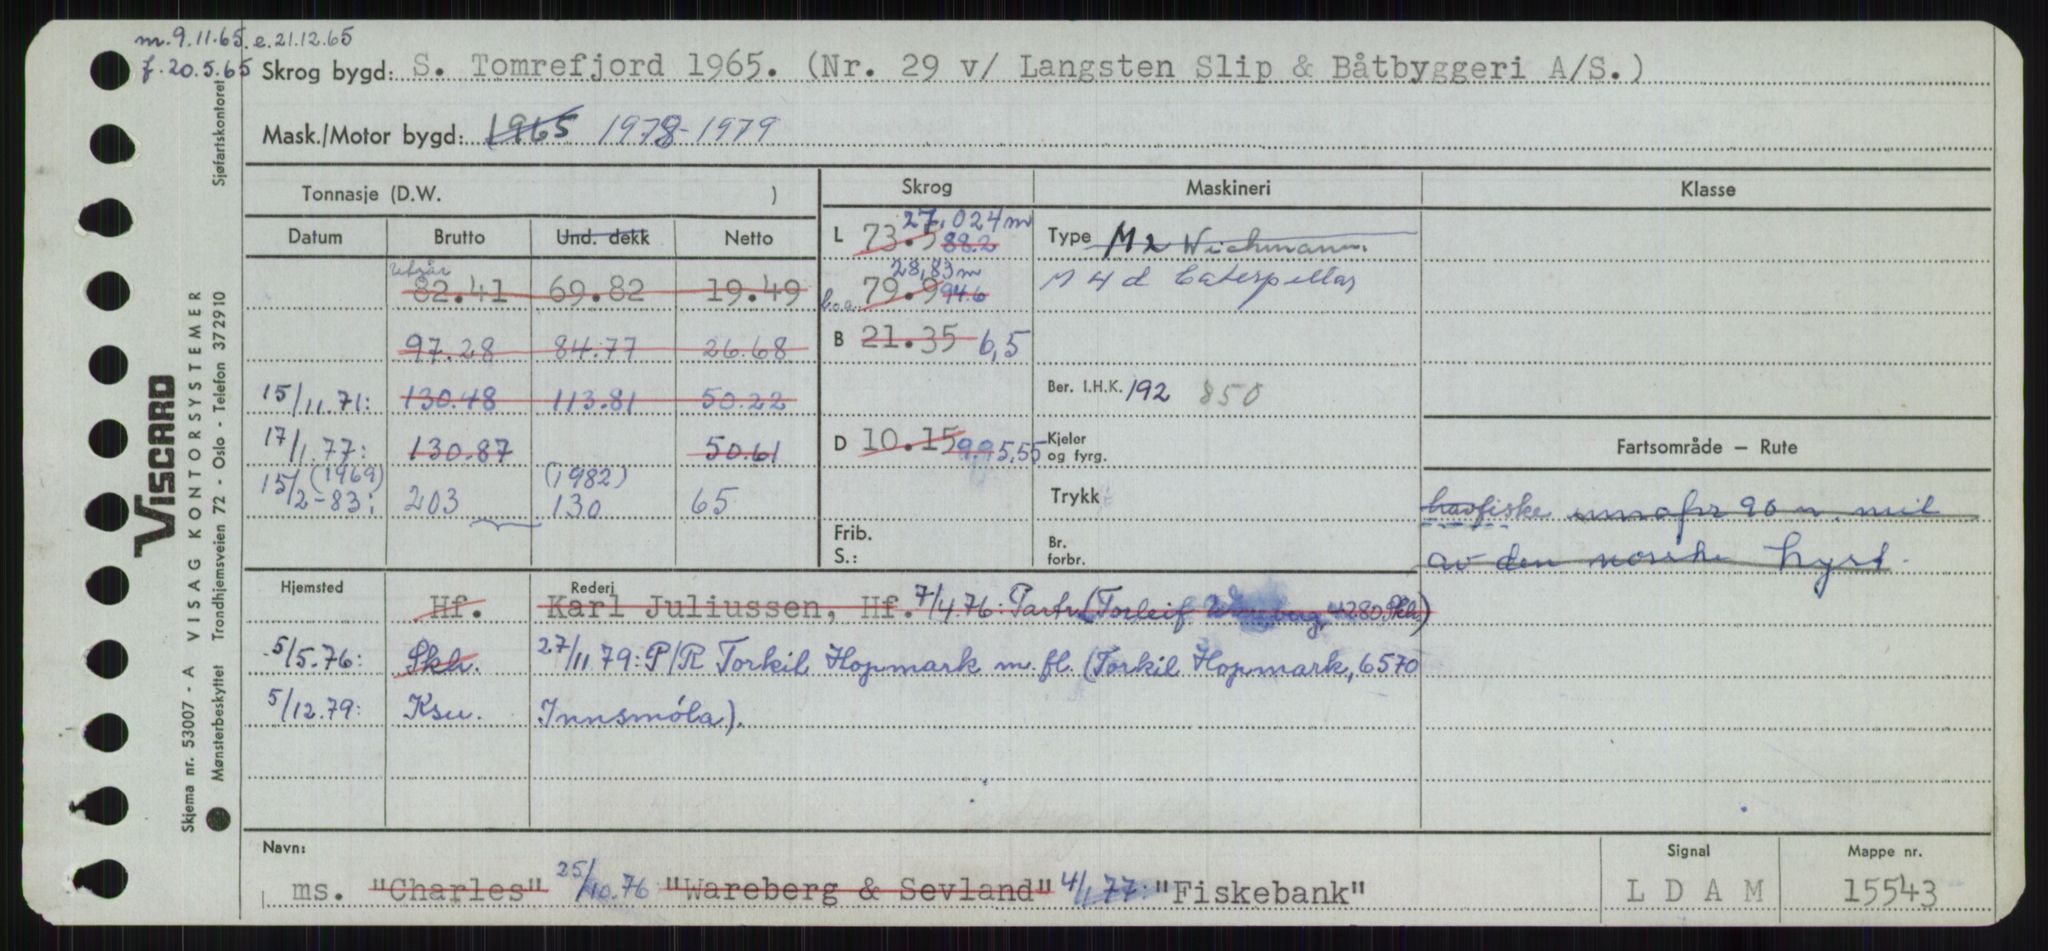 m. 9.11.65. e. 21.12.65
f. 20.5.65 Skrog bygd: S. Tomrefjord 1965. (Nr. 29 v/ Langsten Slip & Båtbyggeri A/S.)
Mask./Motor bygd: 1965 1978-1979
Tonnasje (D.W. ) Skrog Maskineri Klasse
Datum Brutto Und. dekk Netto
L 73.5 88.2 27,024 m Type M 2 Wichmann.
utgår
82.41 69.82 19.49 b.o.a. 79.9 94.6 28,83 m M 4 d Caterpillar
97.28 84.77 26.68 B 21.35 6,5
15/11.71: 130.48 113.81 50.22 Ber. I.H.K. 192 850
17/1.77: 130.87 50.61 D 10.15 9.9 5,55 Kjeler og fyrg. Fartsområde – Rute
(1969) (1982)
15/2-83: 203 130 65 Trykk havfiske innafor 90 n. mil
Frib. S.: Br. forbr. av den norske kyst.
Hjemsted Rederi
Hf. Karl Juliussen, Hf. 7/4.76: Partr. (Torleif 4280 Skh.)
5/5.76: Skh. 27/11.79: P/R Torkil Hopmark m. fl. (Torkil Hopmark, 6570
5/12.79: Ksu. Innsmøla).
Navn: Signal Mappe nr.
ms. "Charles" 25/10.76 "Wareberg & Sevland" 4/1.77: "Fiskebank" L D A M 15543
Viscard
VISAG KONTORSYSTEMER
Skjema nr. 53007 - A
Mønsterbeskyttet Trondhjemsveien 72 - Oslo - Telefon 372910
Sjøfartskontoret